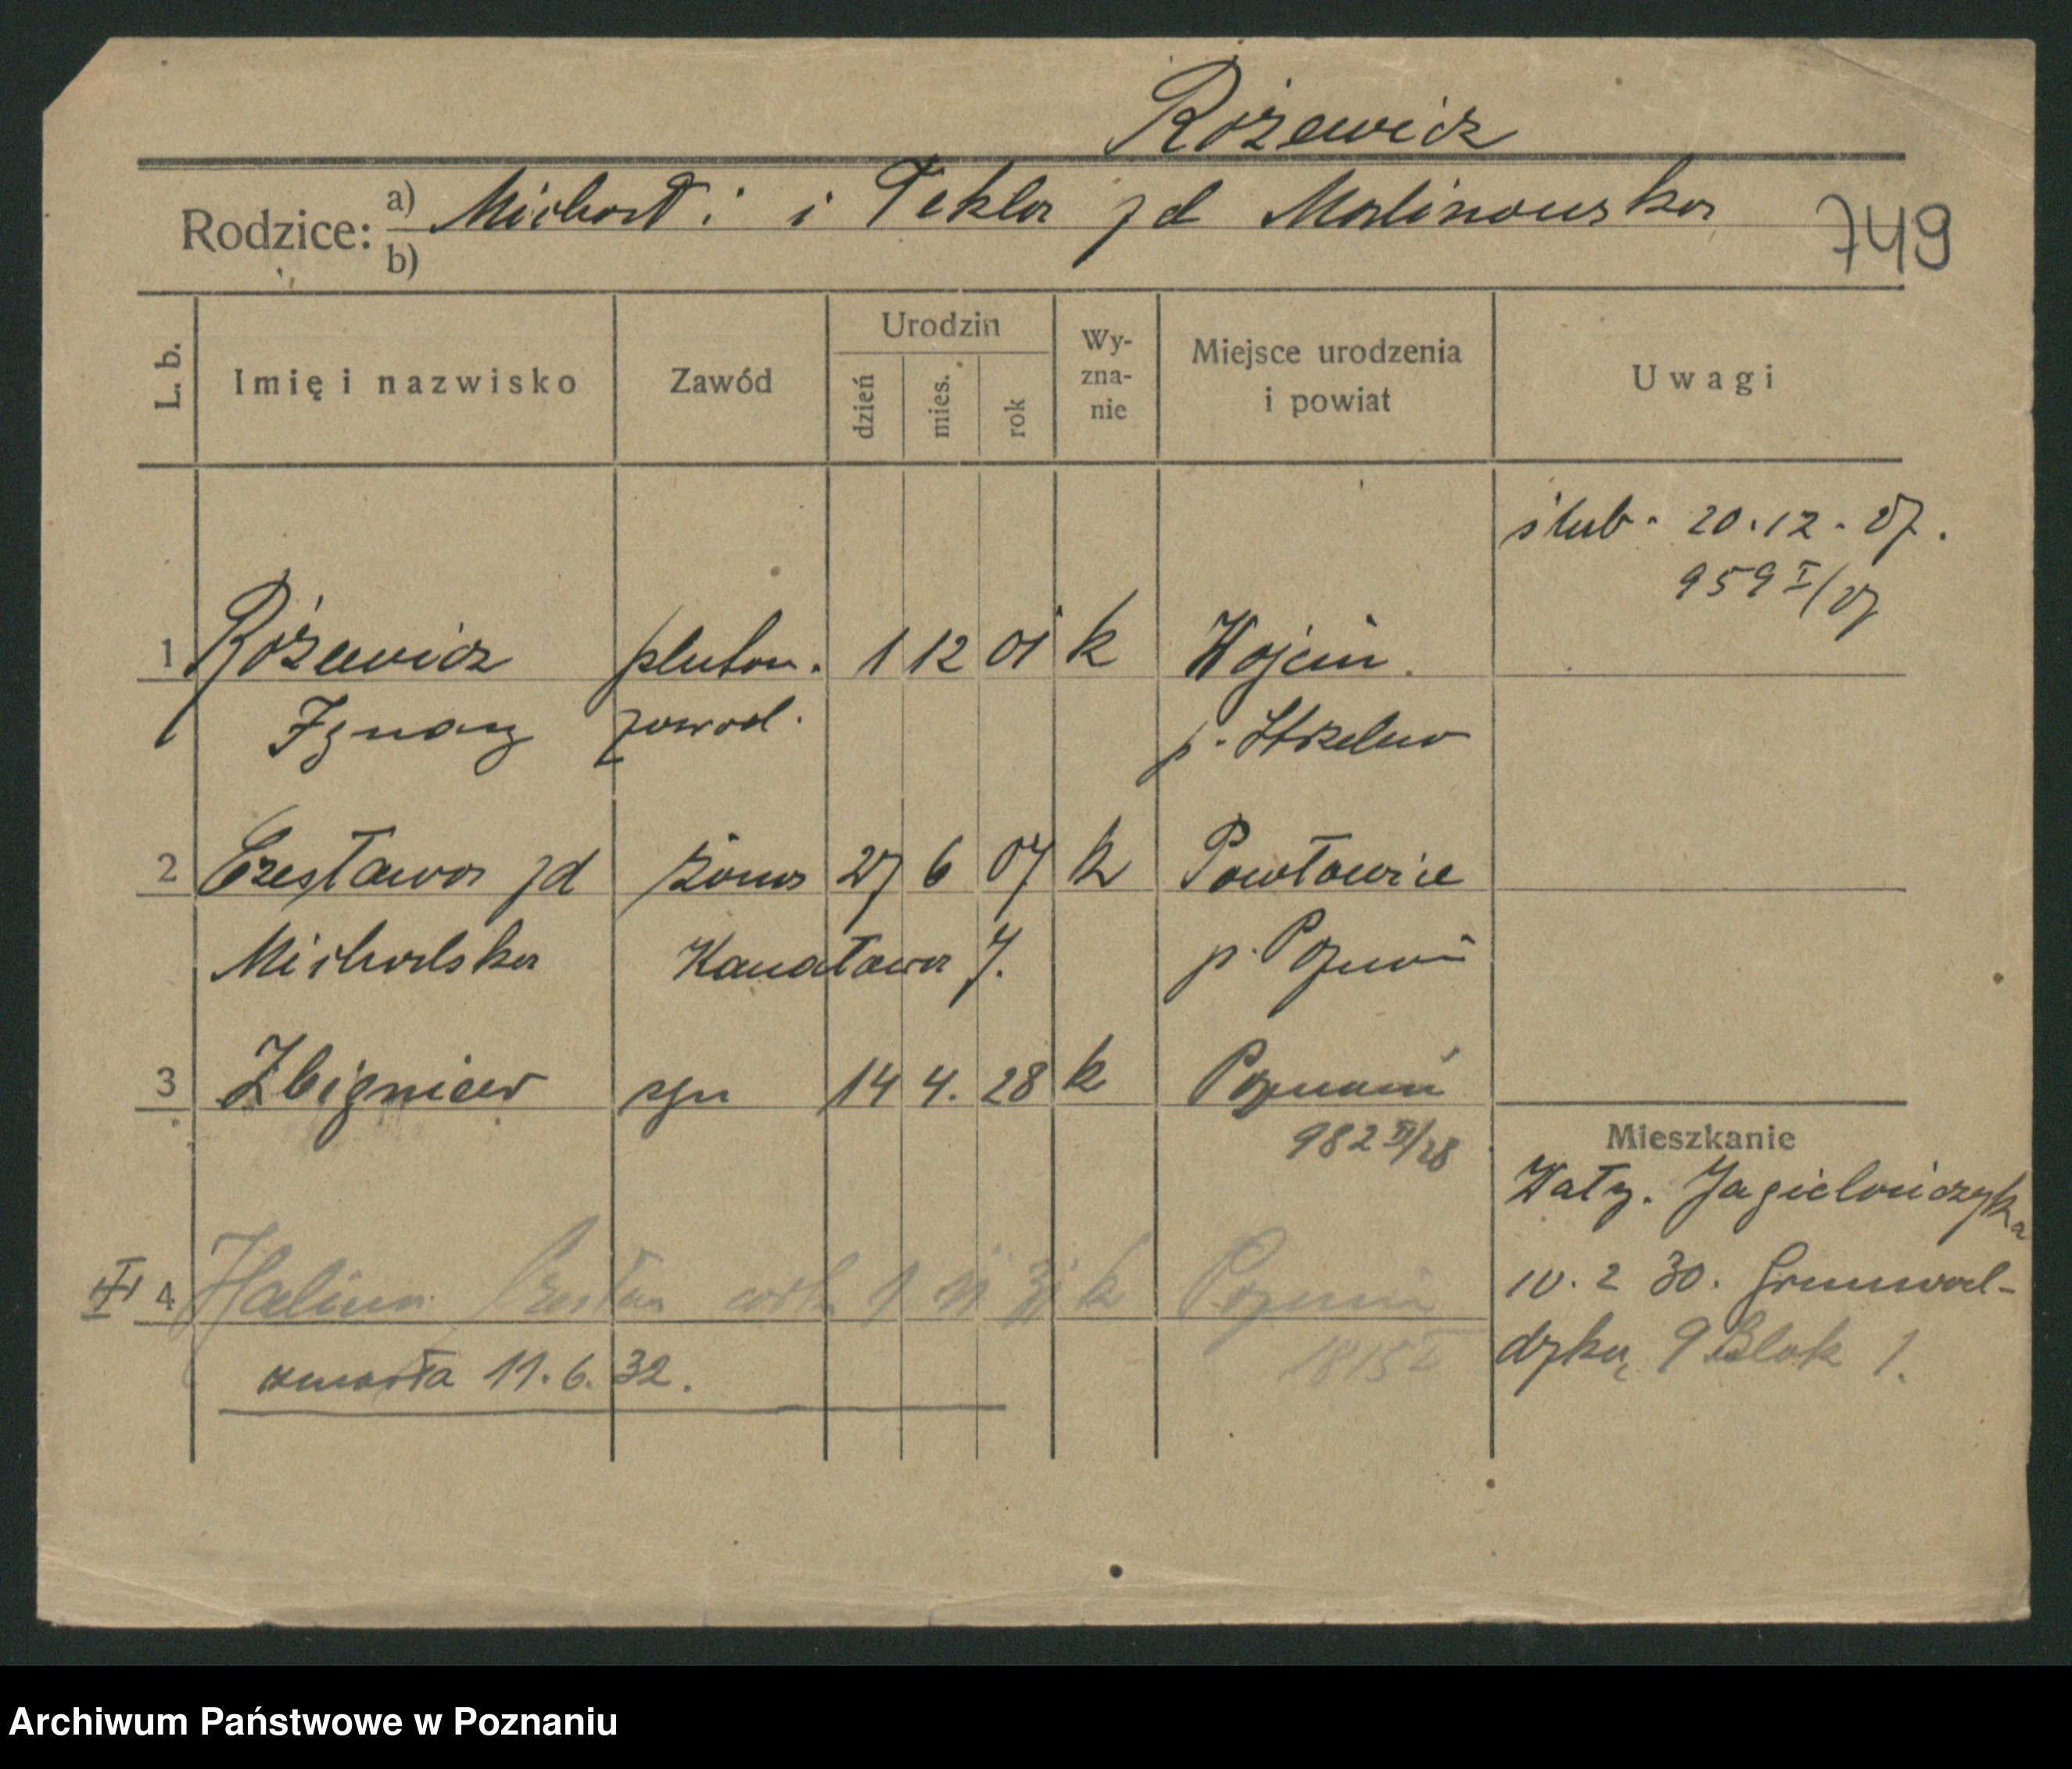 Różewicz
Rodzice: a) Michał i i Tekla zd Malinowska
b)
749
L. b. Imię i nazwisko Zawód Urodzin dzień mies. rok Wy-zna-nie Miejsce urodzenia i powiat Uwagi
ślub. 20.12.27.
959 I/27
1 Różewicz pluton. 1 12 01 k Wojcin
Ignacy zawod. p. Strzelno
2 Czesława zd żona 27 6 07 k Pawłowice
Michalska Kanałowa 7. p. Poznań
3 Zbigniew syn 14 4. 28 k Poznań
982 II/28
Mieszkanie
Wały. Jagielończyka
10. 2 30. Grunwal-
dzka 9 Blok 1.
4 Halina córka 1 11 31 k Poznań
1815 I
zmarła 11.6.32.
Archiwum Państwowe w Poznaniu